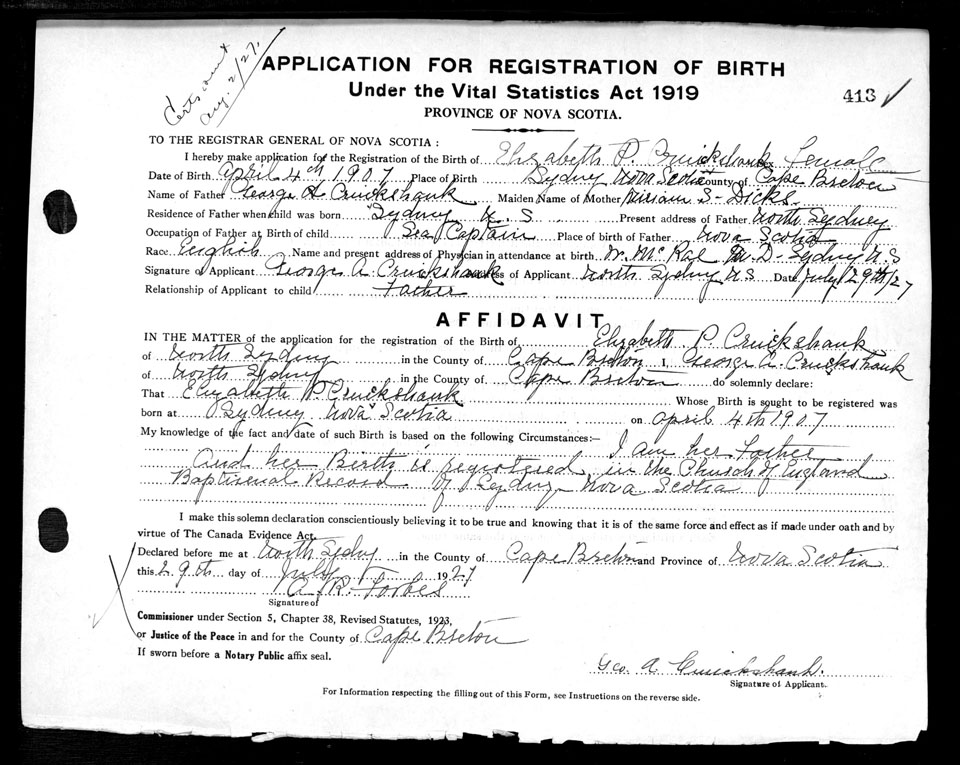 Certs sent
Aug. 2/27.
APPLICATION FOR REGISTRATION OF BIRTH
Under the Vital Statistics Act 1919
413 ✓
PROVINCE OF NOVA SCOTIA.
TO THE REGISTRAR GENERAL OF NOVA SCOTIA :
I hereby make application for the Registration of the Birth of Elizabeth P. Cruickshank Sex Female
Date of Birth April 4th 1907 Place of Birth Sydney Nova Scotia County of Cape Breton
Name of Father George A Cruickshank Maiden Name of Mother S- Dicks.
Residence of Father when child was born Sydney N.S Present address of Father North Sydney
Occupation of Father at Birth of child Sea Captain Place of birth of Father Nova Scotia
Race English Name and present address of Physician in attendance at birth Mc Rae M.D- Sydney N.S
Signature of Applicant George A. Cruickshank Address of Applicant North Sydney N S Date July 29th/27
Relationship of Applicant to child Father
AFFIDAVIT
IN THE MATTER of the application for the registration of the Birth of Elizabeth P. Cruickshank
of North Sydney in the County of Cape Breton I, George A. Cruickshank
of North Sydney in the County of Cape Breton do solemnly declare:
That Elizabeth P. Cruickshank Whose Birth is sought to be registered was
born at Sydney Nova Scotia on April 4th 1907
My knowledge of the fact and date of such Birth is based on the following Circumstances:— I am her Father
And her Birth is registered in the Church of England
Baptismal Record of Sydney Nova Scotia
I make this solemn declaration conscientiously believing it to be true and knowing that it is of the same force and effect as if made under oath and by
virtue of The Canada Evidence Act.
Declared before me at North Sydny in the County of Cape Breton and Province of Nova Scotia
this 29th day of July 1927
A. R. Forbes
Signature of
Commissioner under Section 5, Chapter 38, Revised Statutes, 1923,
or Justice of the Peace in and for the County of Cape Breton
If sworn before a Notary Public affix seal.
Geo. A. Cruickshank.
Signature of Applicant.
For Information respecting the filling out of this Form, see Instructions on the reverse side.